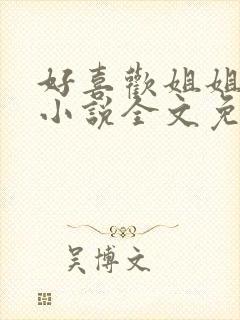 好喜歡姐姐
小說全文免
吴博文